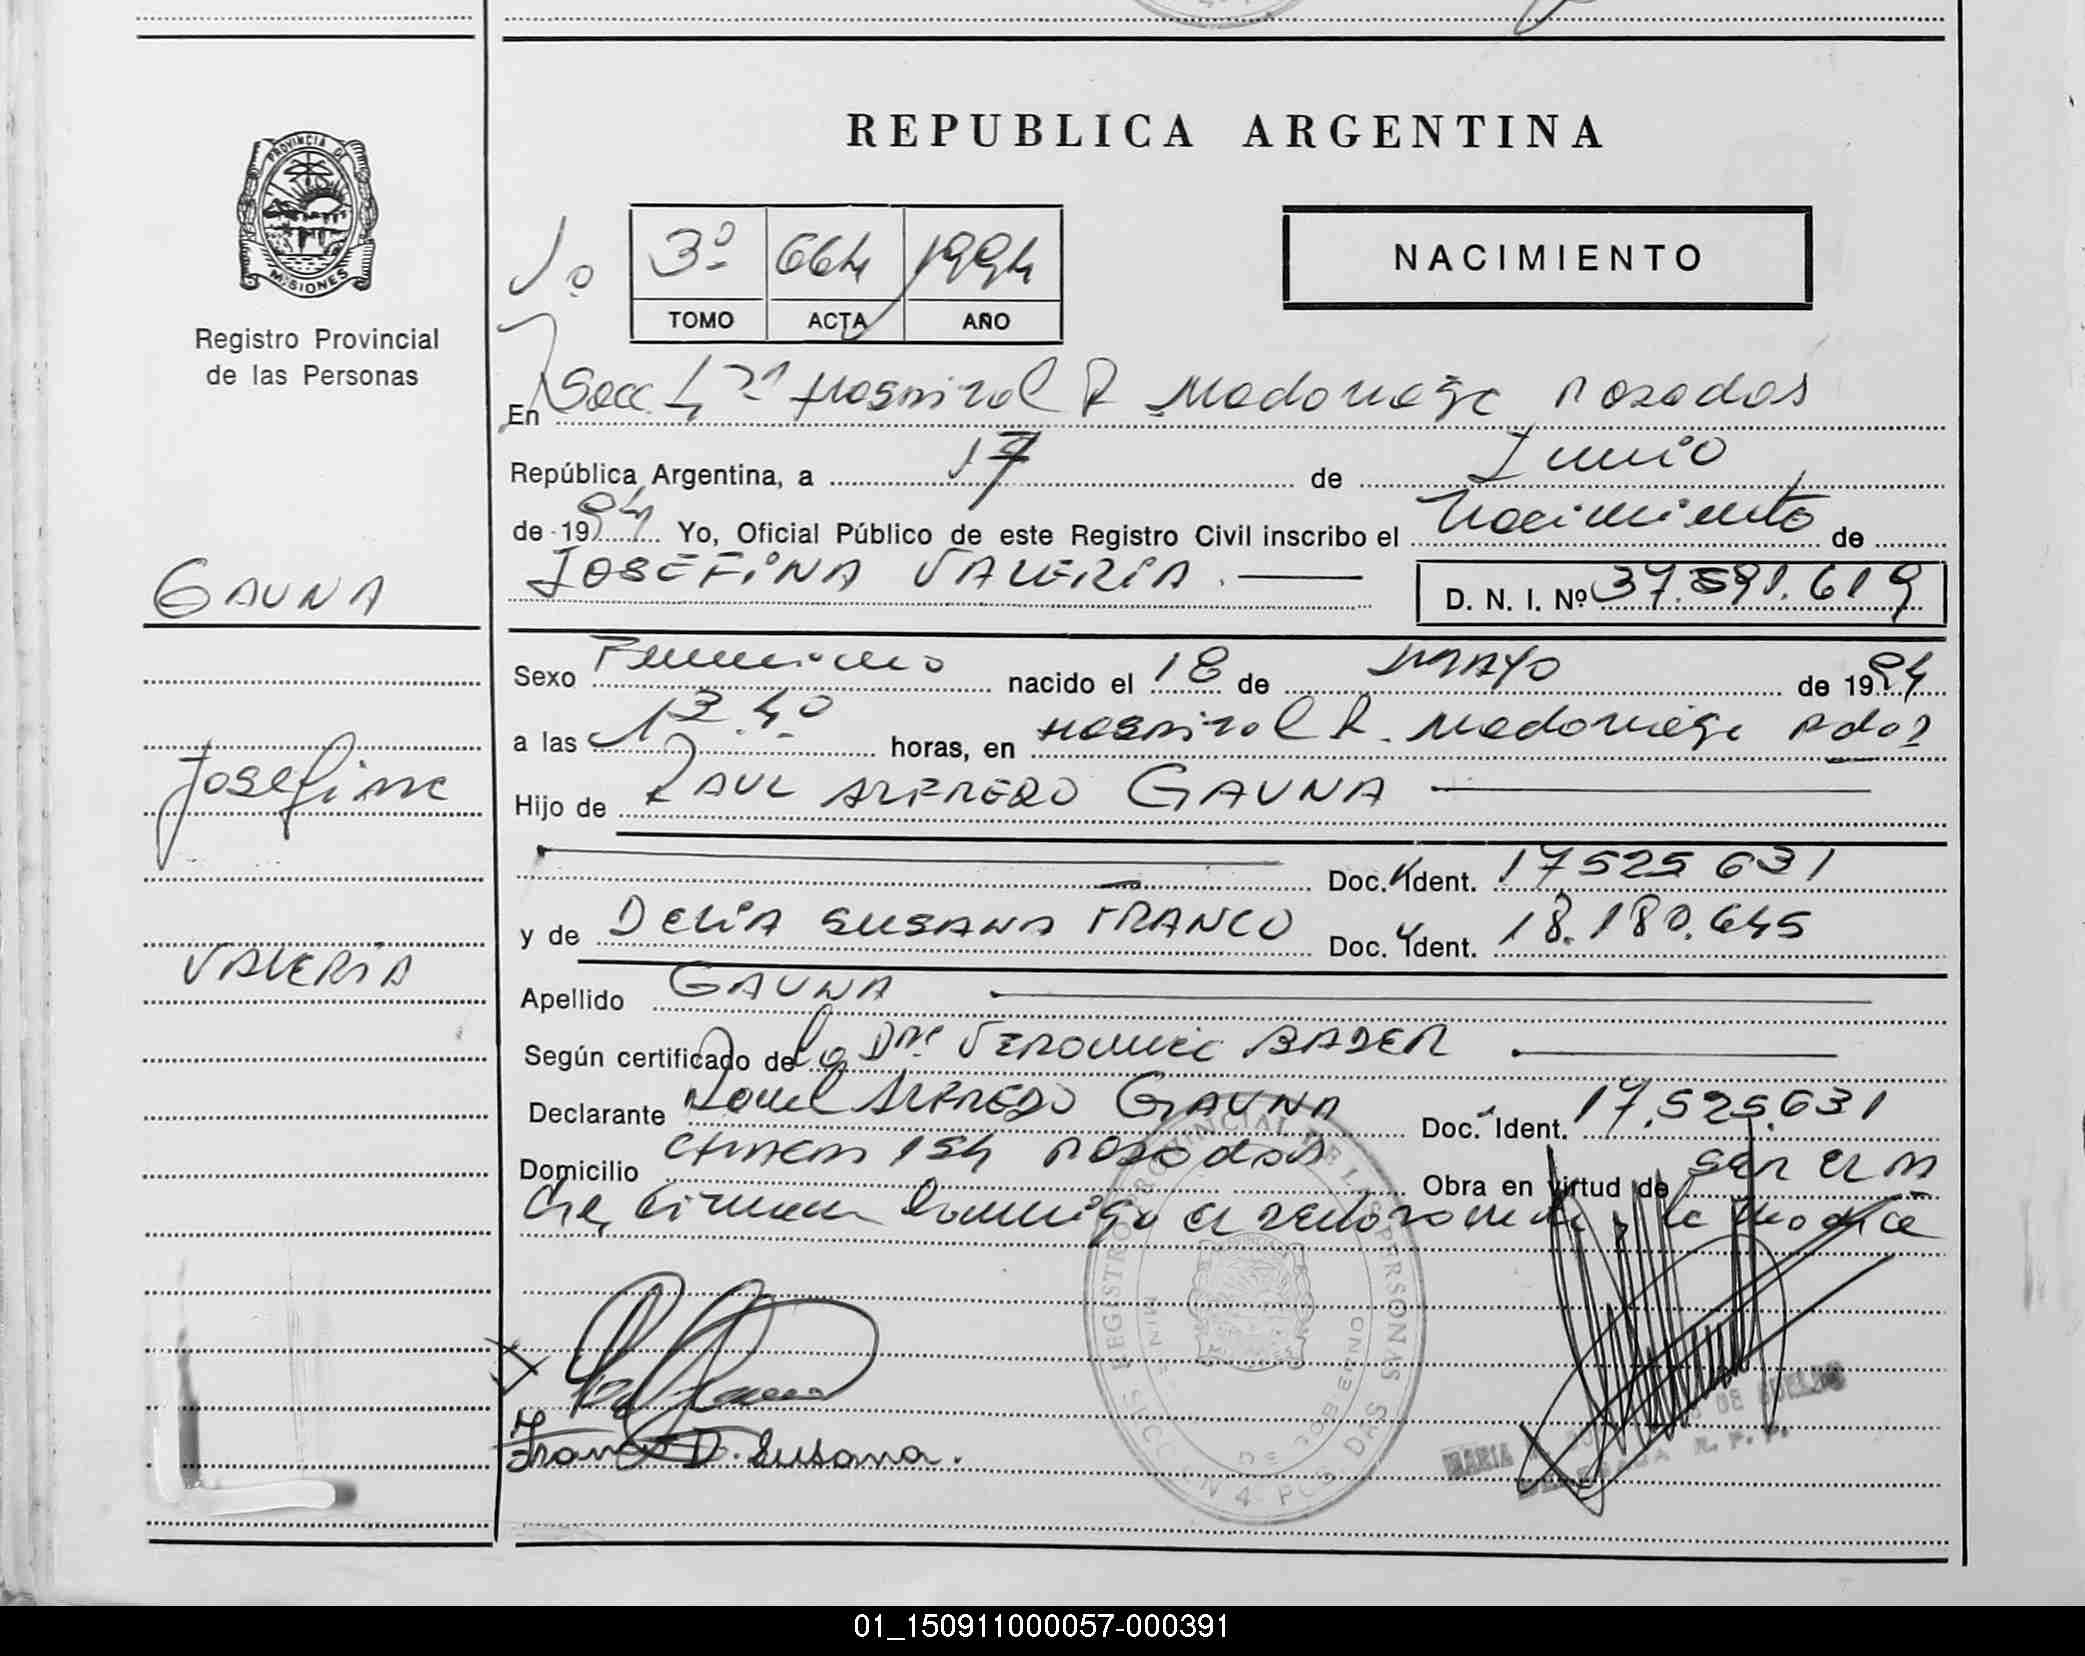 REPUBLICA ARGENTINA
PROVINCIA DE
MISIONES
Registro Provincial
de las Personas
3º 664 1994
TOMO ACTA AÑO
NACIMIENTO
En Secc. 4ª Hospital R. Madariaga Posadas
República Argentina, a 17 de Junio
de 1994 Yo, Oficial Público de este Registro Civil inscribo el Nacimiento de
JOSEFINA VALERIA. D. N. I. Nº 37.591.619
GAUNA
Josefina
VALERIA
Sexo Femenino nacido el 18 de MAYO de 1994
a las 13.40 horas, en Hospital R. Madariaga Pdas
Hijo de RAUL ALFREDO GAUNA
Doc. Ident. 17525631
y de DELIA SUSANA FRANCO Doc. Ident. 18.180.645
Apellido GAUNA
Según certificado de la Dra VERONICA BADER
Declarante Raul ALFREDO GAUNA Doc. Ident. 17.525.631
Domicilio 154 Posadas Obra en virtud de SER EL PA
dre, firman conmigo el declarante y la madre
Franco D. Susana.
REGISTRO PROVINCIAL DE LAS PERSONAS
DE GOBIERNO
SECCION 4 POSADAS
MARIA
01_150911000057-000391